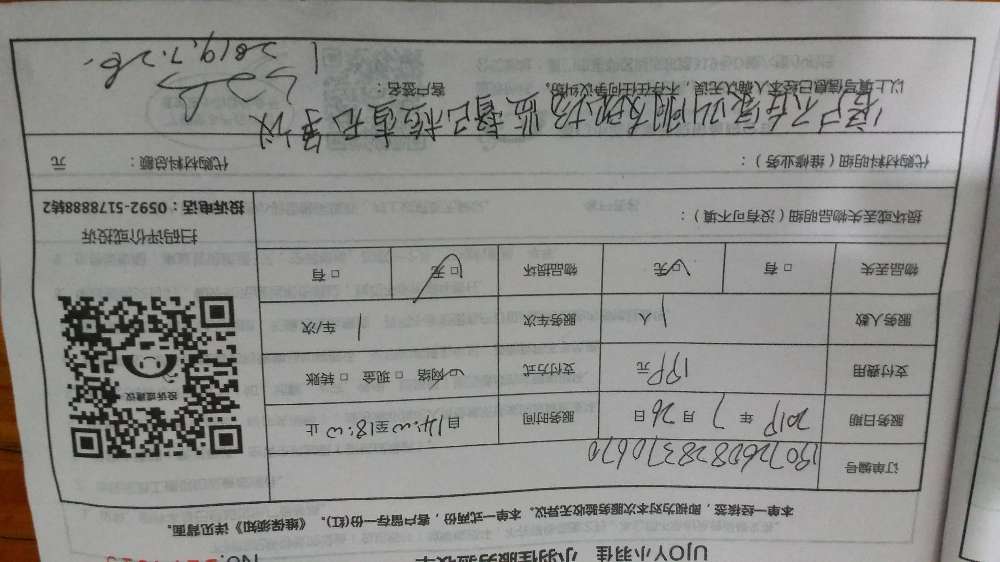 UJOY小羽佳 小羽佳服务验收单 NO.
本单一经核签，即视为对本次服务验收无异议。本单一式两份，客户留存一份(红)。《维保须知》详见背面。
订单编号 190726082837067
服务日期 2019 年 7 月 26 日 服务时间 自14:00至18:00止
支付费用 199元 支付方式 ☑网络 □现金 □转账
服务人数 1人 服务车次 1 车/次
物品丢失 □有 ☑无 物品损坏 ☑无 □有
投诉或建议
扫码评价或投诉
投诉电话：0592-5178888转2
损坏或丢失物品明细（没有可不填）：
代购材料明细（维修业务）： 代购材料总额： 元
客户不在家叫朋友现场监督已检查无异议
以上填写信息已经本人确认无误，不存在任何争议纠纷。 客户签名：
2019.7.26.